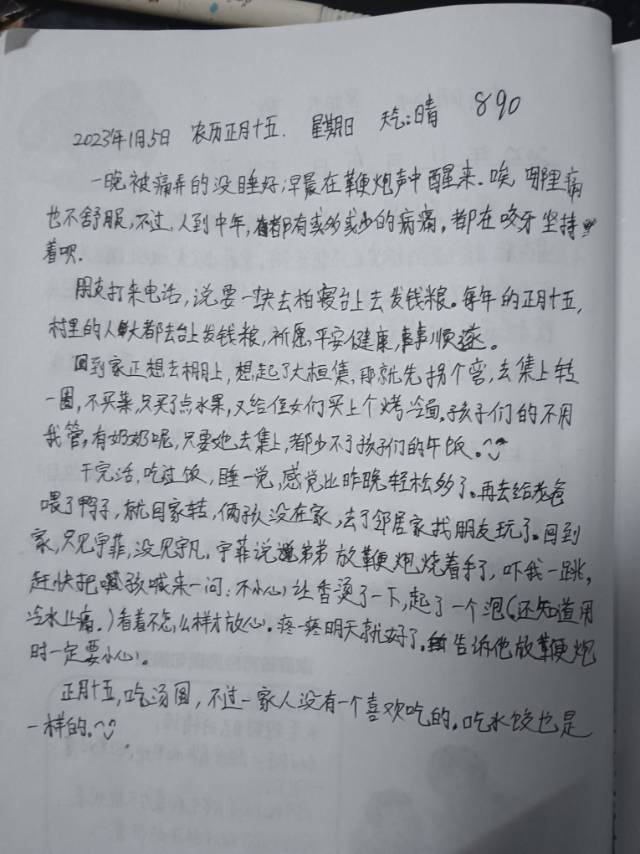 2023年1月5日 农历正月十五. 星期日 天气:晴 890
一晚被痛弄的没睡好,早晨在鞭炮声中醒来.唉,哪里痛
也不舒服,不过,人到中年,都有或多或少的病痛,都在咬牙坚持
着呗.
朋友打来电话,说要一块去柏寝台上去发钱粮。每年的正月十五,
村里的人都去台上发钱粮,祈愿,平安健康,事事顺遂。
回到家正想去棚上,想起了大桓集,那就先拐个弯,去集上转
一圈,不买菜,只买了点水果,又给侄女们买上个烤冷面,孩子们的不用
我管,有奶奶呢,只要她去集上,都少不了孩子们的午饭。
干完活,吃过饭,睡一觉,感觉比昨晚轻松多了。再去给老爸
喂了鸭子,就回家转,俩孩没在家,去了邻居家找朋友玩了。回到
家,只见宇菲,没见宇凡,宇菲说弟弟放鞭炮烧着手了,吓我一跳,
赶快把孩喊来一问:不小心让香烫了一下,起了一个泡(还知道用
冷水止痛。)看着不怎么样才放心。疼一疼明天就好了。告诉他放鞭炮
时一定要小心。
正月十五,吃汤圆,不过一家人没有一个喜欢吃的。吃水饺也是
一样的。